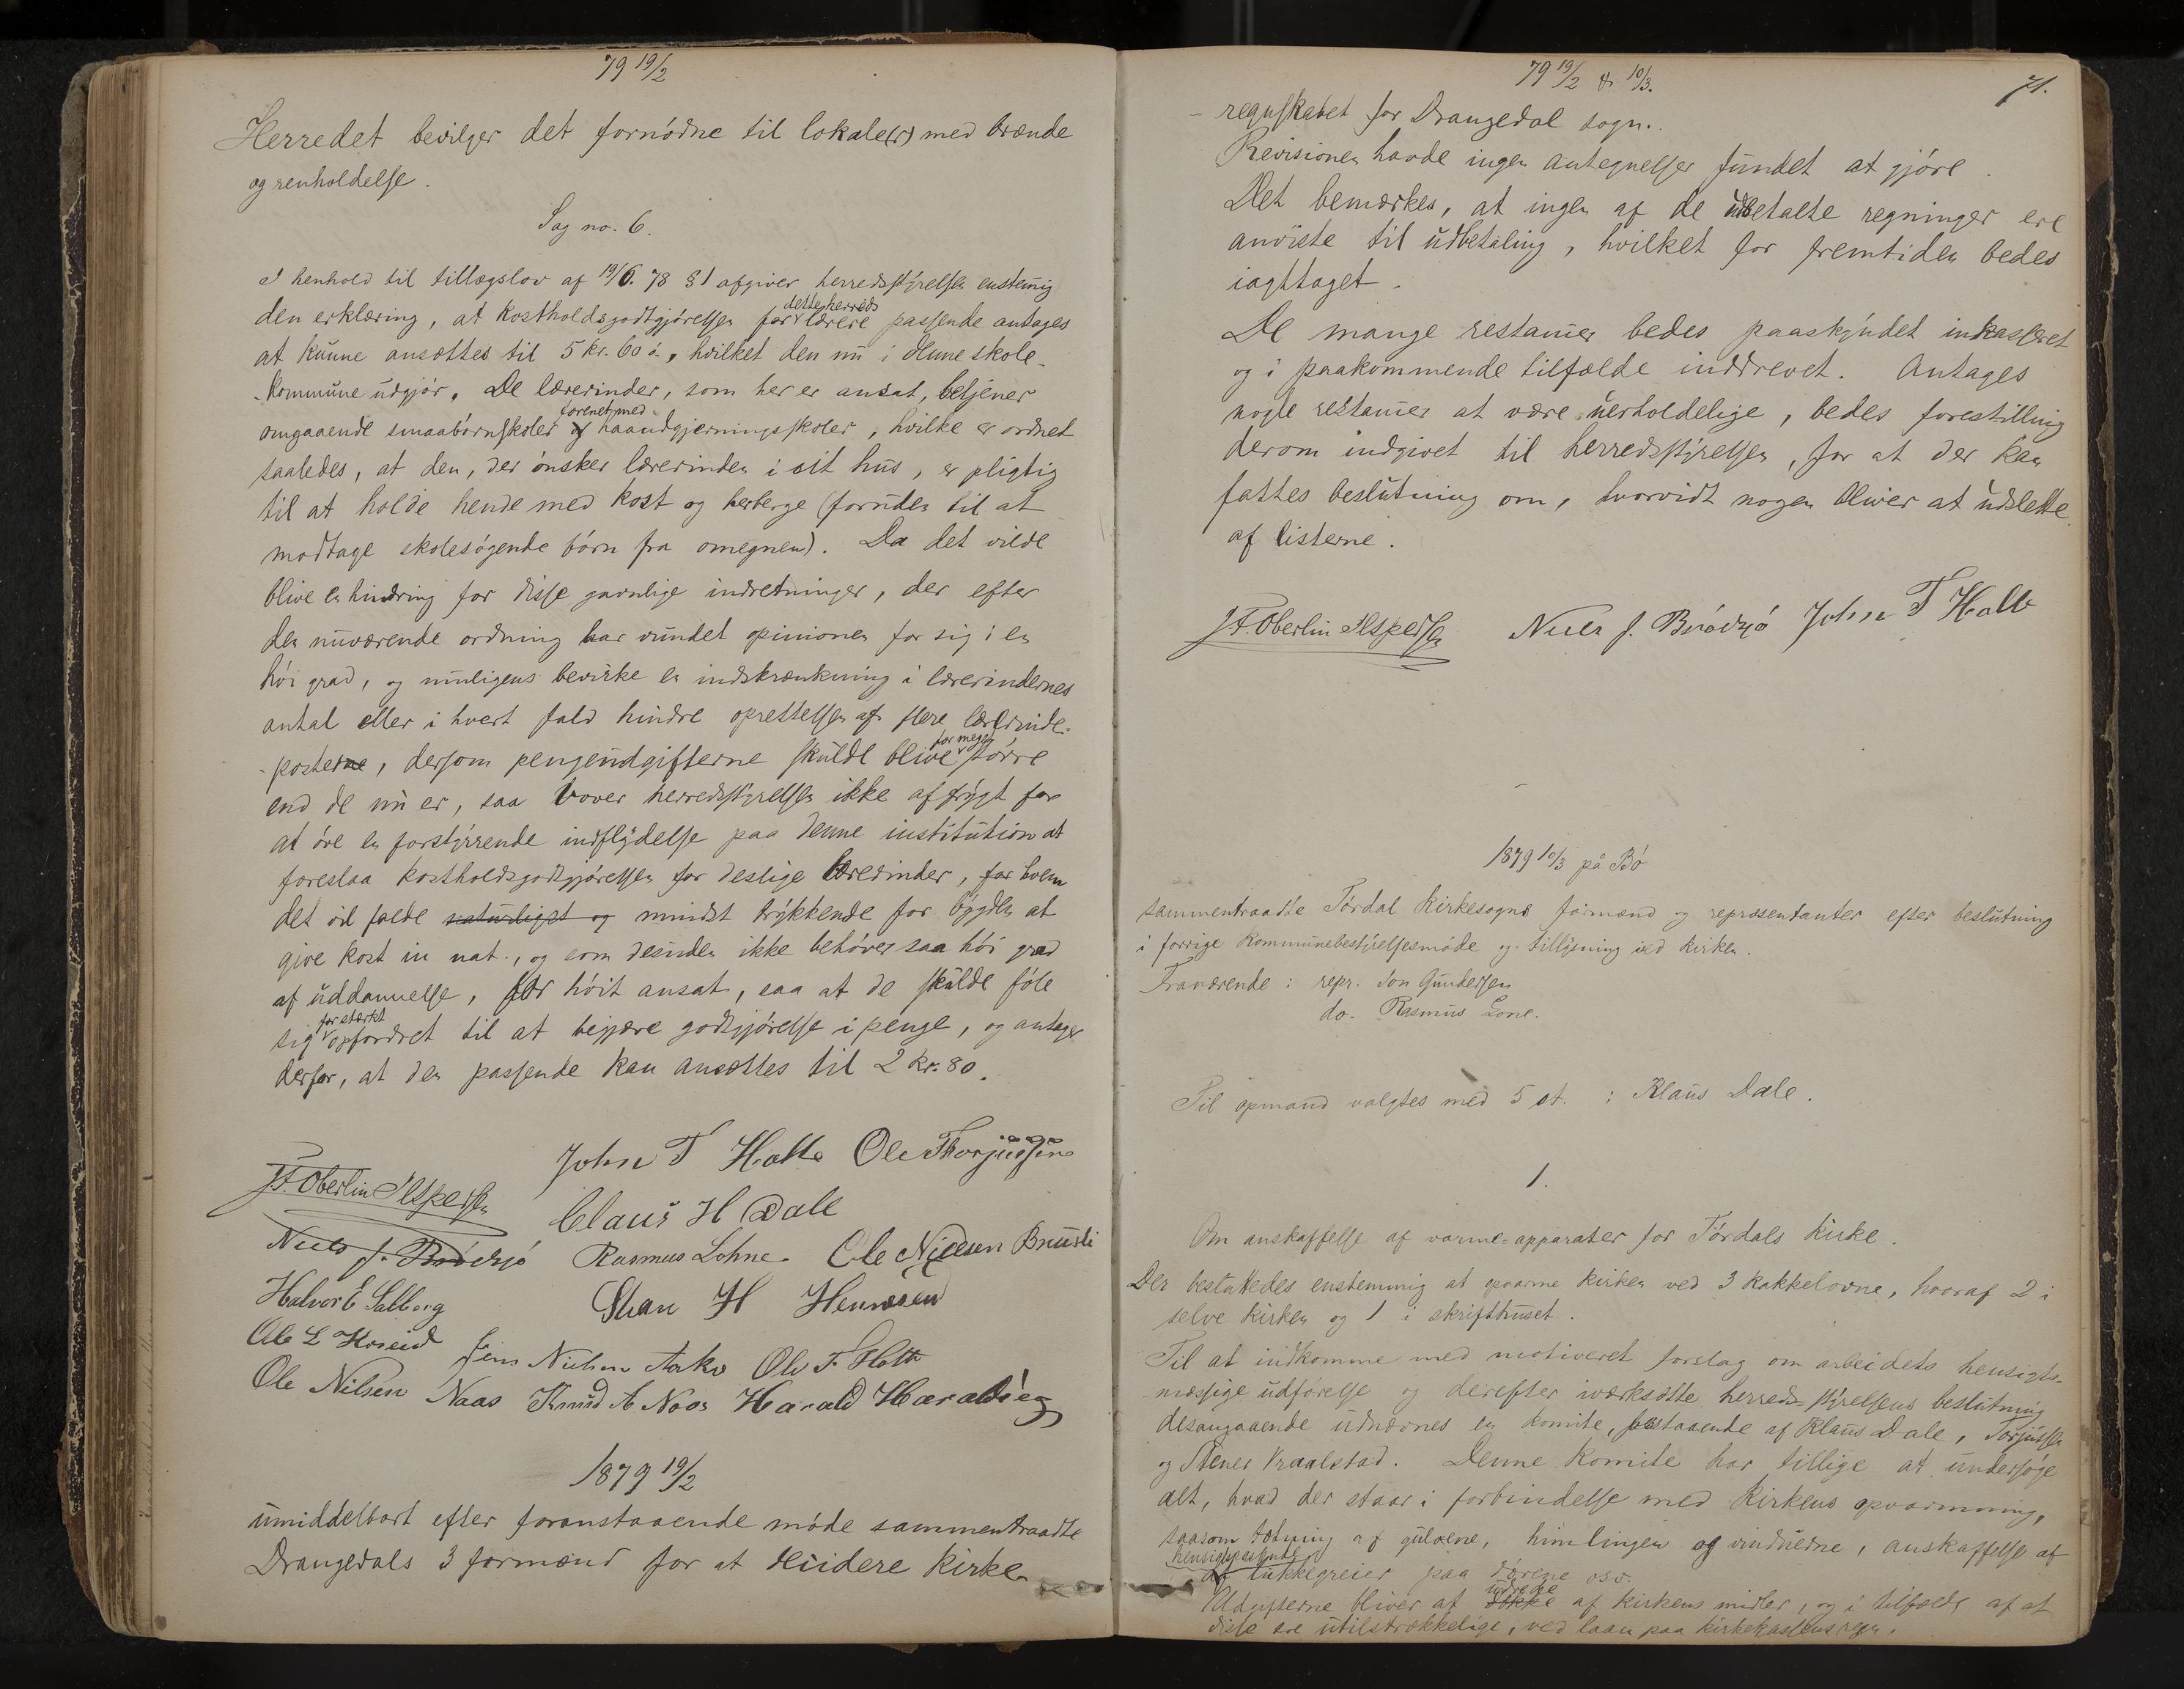 79 19/2
Herredet bevilger det fornødne til lokale(r) med brænde
og renholdelse.
Sag no. 6.
I henhold til tillægslov af 19/6. 78 § 1 afgiver herredsstyrelsen enstemig
den erklæring, at kostholdsgodtgjørelsen for dette herreds lærere passende antages
at kunne ansættes til 5 kr. 60 ø., hvilket den nu i denne skole-
-kommune udgjør. De lærerinder, som her er ansat, betjener
omgaaende smaabørnskoler forenet med haandgjerningsskoler, hvilke er ordnet
saaledes, at den, der ønsker lærerinden i sit hus, er pligtig
til at holde hende med kost og herberge (foruden til at
modtage skolesøgende børn fra omegnen). Da det vilde
blive en hindring for disse gavnlige indretninger, der efter
den nuværende ordning har vundet opinionen for sig i en
høi grad, og muligens bevirke en indskrænkning i lærerindernes
antal eller i hvert fald hindre oprettelsen af flere lærerinde-
-posterne, dersom pengeudgifterne skulde blive for meget større
end de nu er, saa vover herredsstyrelsen ikke af frygt for
at øve en forstyrrende indflydelse paa denne institution at
foreslaa kostholdsgodtgjørelsen for deslige lærerinder, for hvem
det vil falde naturligst og mindst trykkende for bygden at
give kost in nat., og som desuden ikke behøver saa høi grad
af uddannelse, for høit ansat, saa at de skulde føle
sig for stærkt opfordret til at begjære godtgjørelse i penge, og antager
derfor, at den passende kan ansættes til 2 kr. 80.
John T Holte Ole Thorjussen
J.F. Oberlin Ilspersen
Claus H Dale
Niels J. Brødsjø Rasmus Lohne. Ole Nielsen Bruusli
Halvor E Salberg Stian H Henneseid
Ole L Hoseid Jens Nielsen Aakr Ole T. Holte
Ole Nilsen Naas Knud A Naas Harald Haraldseg
1879 19/2
umiddelbart efter foranstaaende møde sammentraadte
Drangedals 3 formænd for at revidere kirke-
79 19/2 & 10/3.
71.
- regnskabet for Drangedal sogn.
Revisionen havde ingen antegnelser fundet at gjøre.
Det bemærkes, at ingen af de udbetalte regninger ere
anviste til udbetaling, hvilket for fremtiden bedes
iagttaget.
De mange restancer bedes paaskyndet inkasseret
og i paakommende tilfælde inddrevet. Antages
nogle restancer at være uerholdelige, bedes forestilling
derom indgivet til herredsstyrelsen, for at der kan
fattes beslutning om, hvorvidt nogen bliver at udslette
af listerne.
J.F. Oberlin Ilspersen Niels J. Brødsjø John T Holte
1879 10/3 på Bø
sammentraadte Tørdal kirkesogns formænd og repræsentanter efter beslutning
i forrige kommunebestyrelsesmøde og tillysning ved kirken.
Fraværende: repr. Jon Gundersen
do. Rasmus Lone.
Til opmand valgtes med 5 st.: Klaus Dale.
1.
Om anskaffelse af varme-apparater for Tørdals kirke.
Der besluttedes enstemmig at opvarme kirken ved 3 kakkelovne, hvoraf 2 i
selve kirken og 1 i skrifthuset.
Til at indkomme med motiveret forslag om arbeidets hensigts-
mæssige udførelse og derefter iværksætte herreds-styrelsens beslutning
desangaaende udnævnes en komite, bestaaende af Klaus Dale, Torjussen
og Stener Vraalstad. Denne komite har tillige at undersøge
alt, hvad der staar i forbindelse med kirkens opvarmning,
saasom tætning af gulvene, himlingen og vinduerne, anskaffelse af
hensigtspassende lukkegreier paa dørene osv.
Udgifterne bliver at udrede af kirkens midler, og i tilfælde af at
disse ere utilstrækkelige, ved laan paa kirkekassens regn.